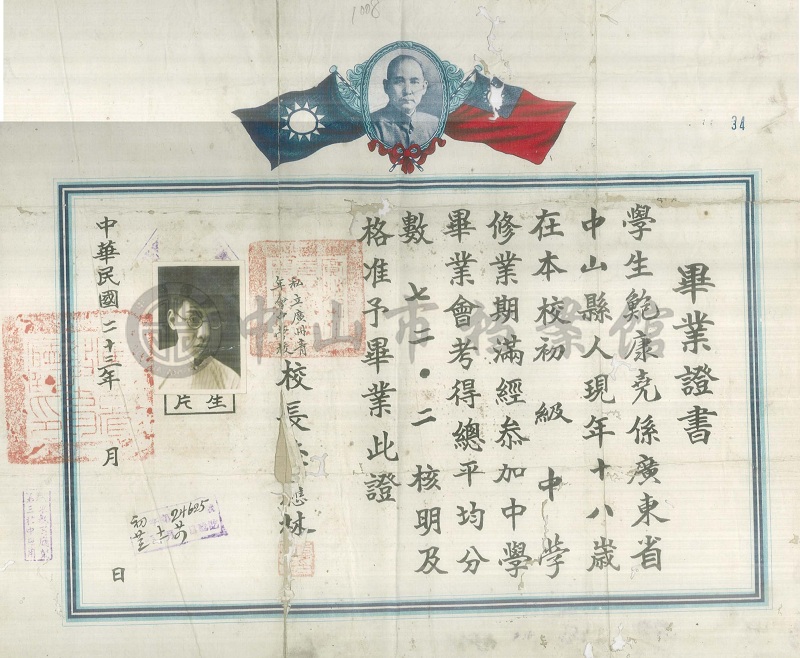 1008
34
畢業證書
學生鮑康堯係廣東省
中山縣人現年十八歲
在本校初級中學
修業期滿經叅加中學
畢業會考得總平均分
數七二·二核明及
格准予畢業此證
私立廣州青
年會中學校
校長
林
生片
中華民國二十三年 月 日
24625
中山市档案馆